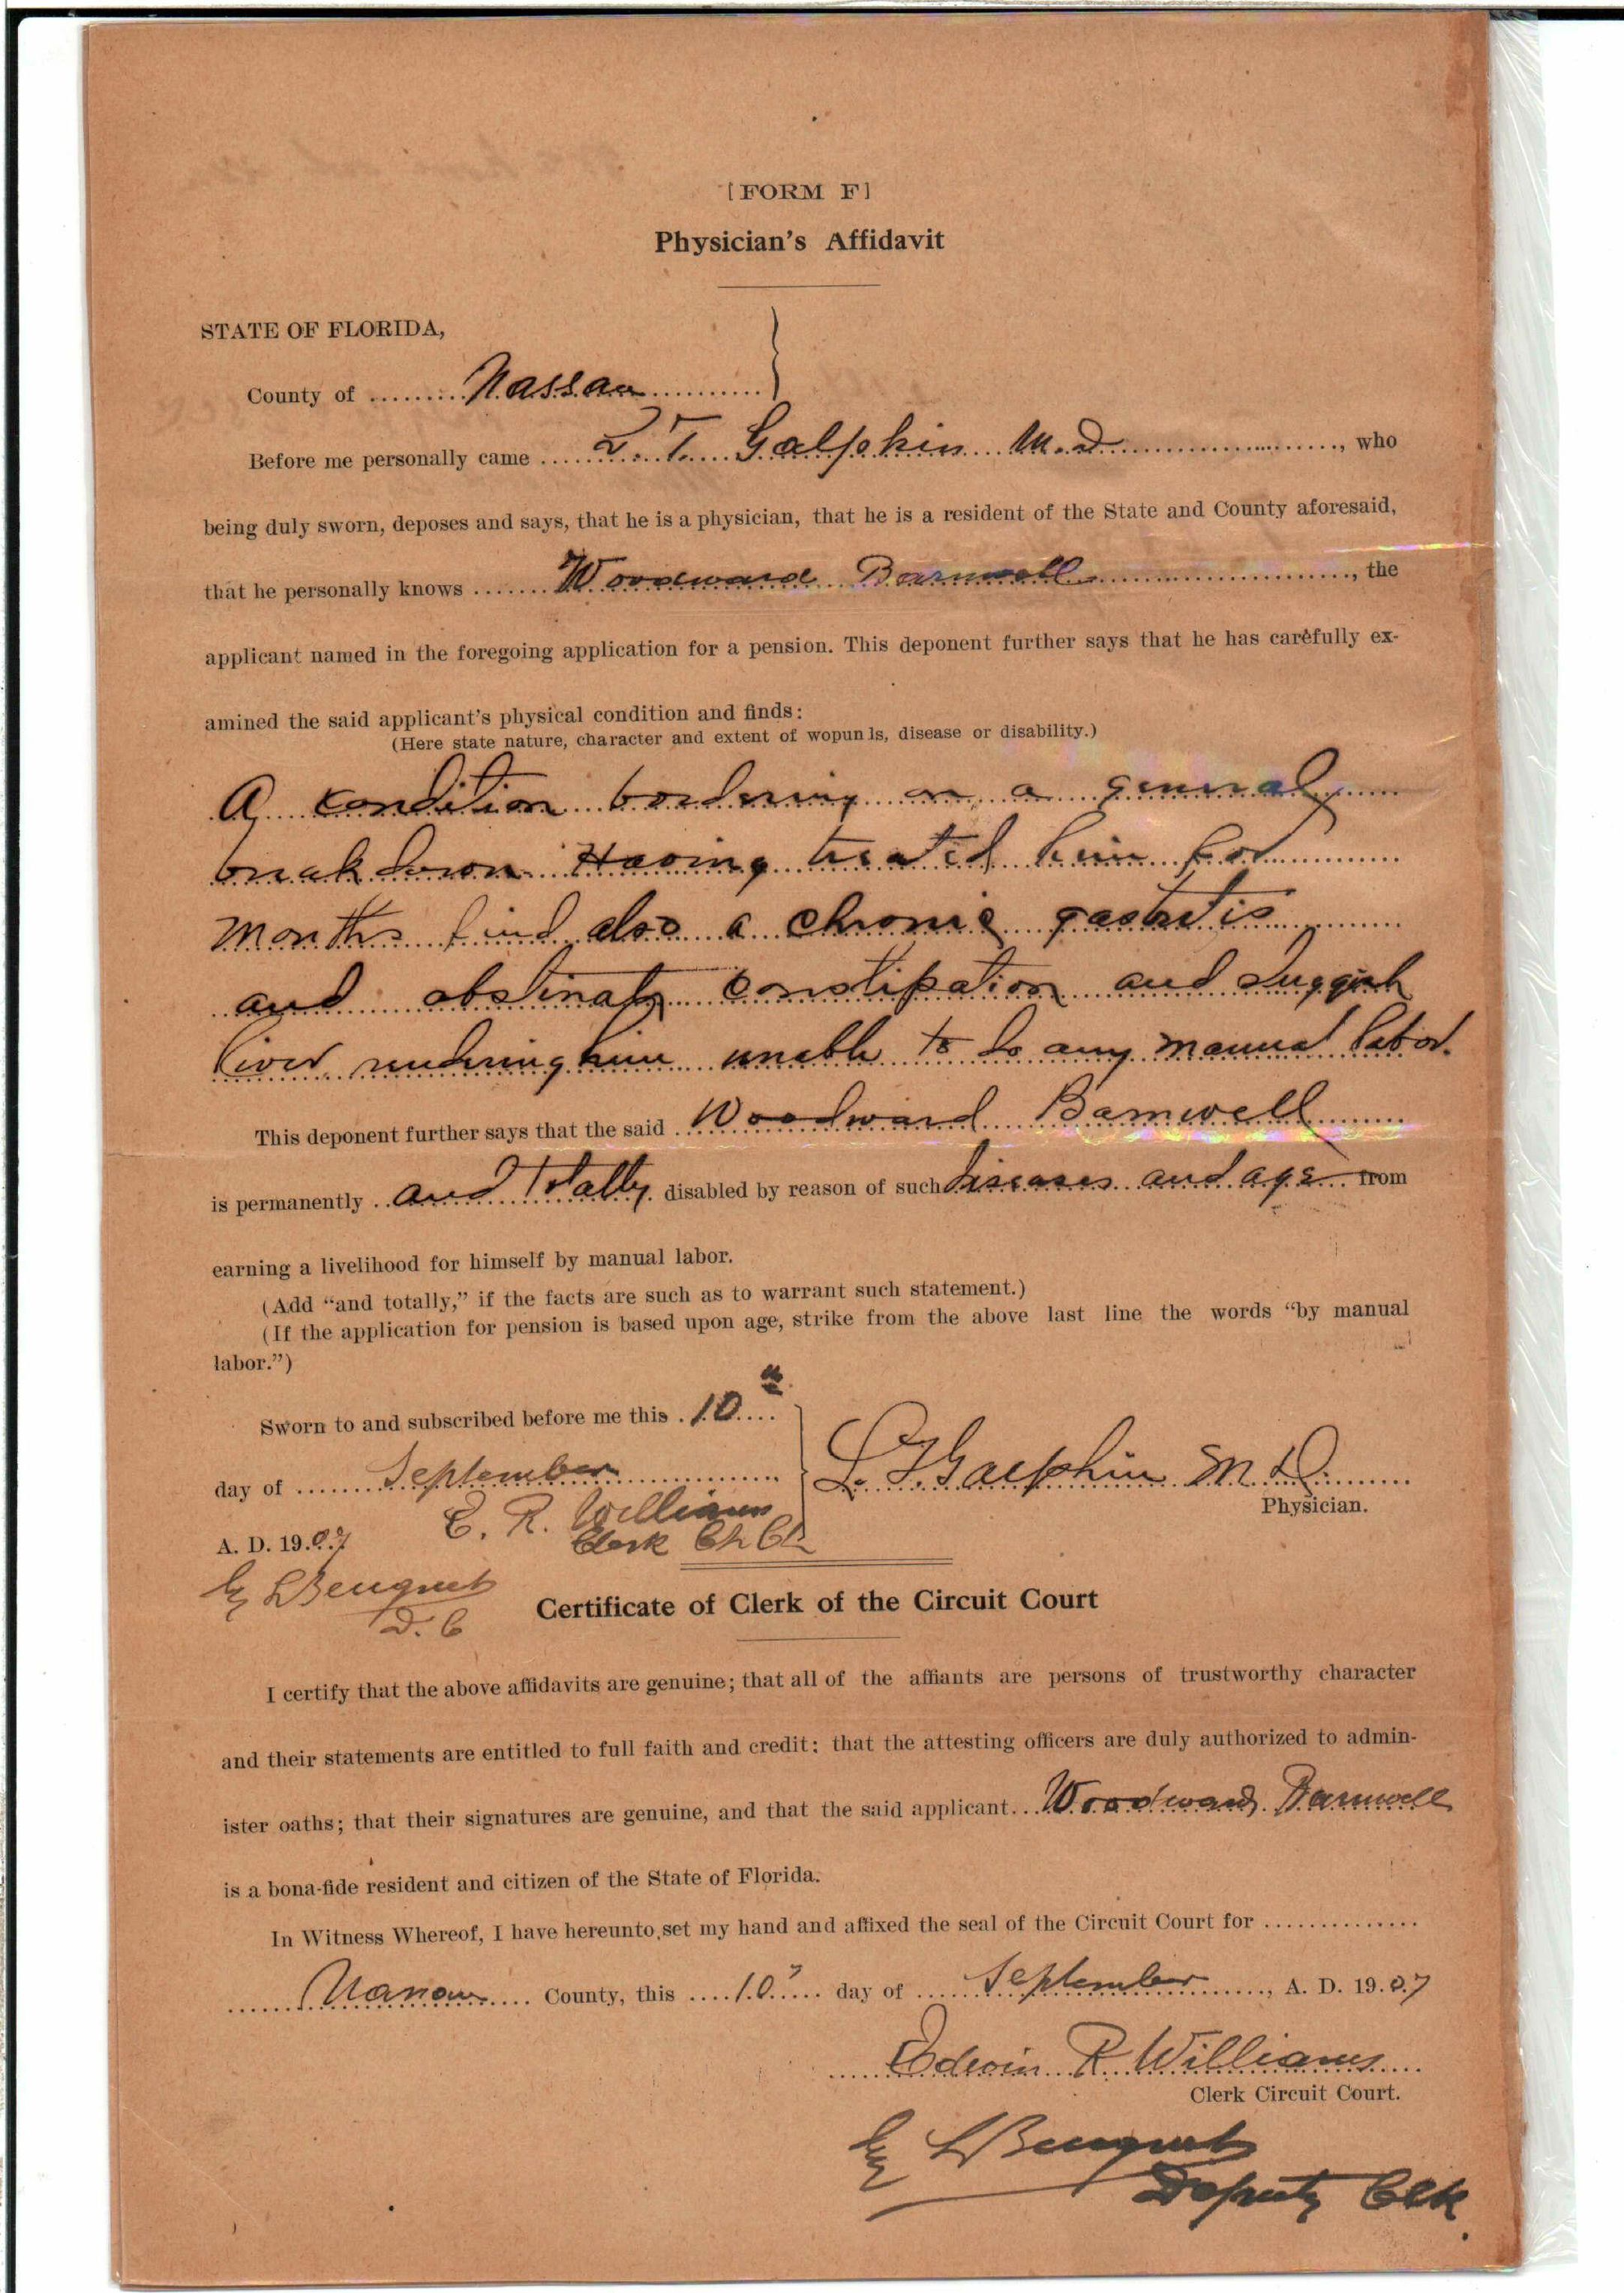 [FORM F]
Physician's Affidavit
STATE OF FLORIDA,
County of Nassau
Before me personally came L. T. Galphin M.D., who
being duly sworn, deposes and says, that he is a physician, that he is a resident of the State and County aforesaid,
that he personally knows Woodward Barnwell, the
applicant named in the foregoing application for a pension. This deponent further says that he has carefully ex-
amined the said applicant's physical condition and finds:
(Here state nature, character and extent of wopun ls, disease or disability.)
A condition bordering on a general
breakdown Having treated him for
months find also a chronic gastritis
and obstinate constipation and sluggish
liver rendering him unable to do any manual labor.
This deponent further says that the said Woodward Barnwell
is permanently and totally disabled by reason of such diseases and age from
earning a livelihood for himself by manual labor.
(Add "and totally," if the facts are such as to warrant such statement.)
(If the application for pension is based upon age, strike from the above last line the words "by manual
labor.")
Sworn to and subscribed before me this 10th
day of September
L. T. Galphin M.D.
Physician.
A. D. 1907
E. R. Williams
Clerk
By
D. C
Certificate of Clerk of the Circuit Court
I certify that the above affidavits are genuine; that all of the affiants are persons of trustworthy character
and their statements are entitled to full faith and credit: that the attesting officers are duly authorized to admin-
ister oaths; that their signatures are genuine, and that the said applicant Woodward Barnwell
is a bona-fide resident and citizen of the State of Florida.
In Witness Whereof, I have hereunto set my hand and affixed the seal of the Circuit Court for
Nassau County, this 10" day of September, A. D. 1907
Edwin R Williams
Clerk Circuit Court.
By
Deputy Clk.